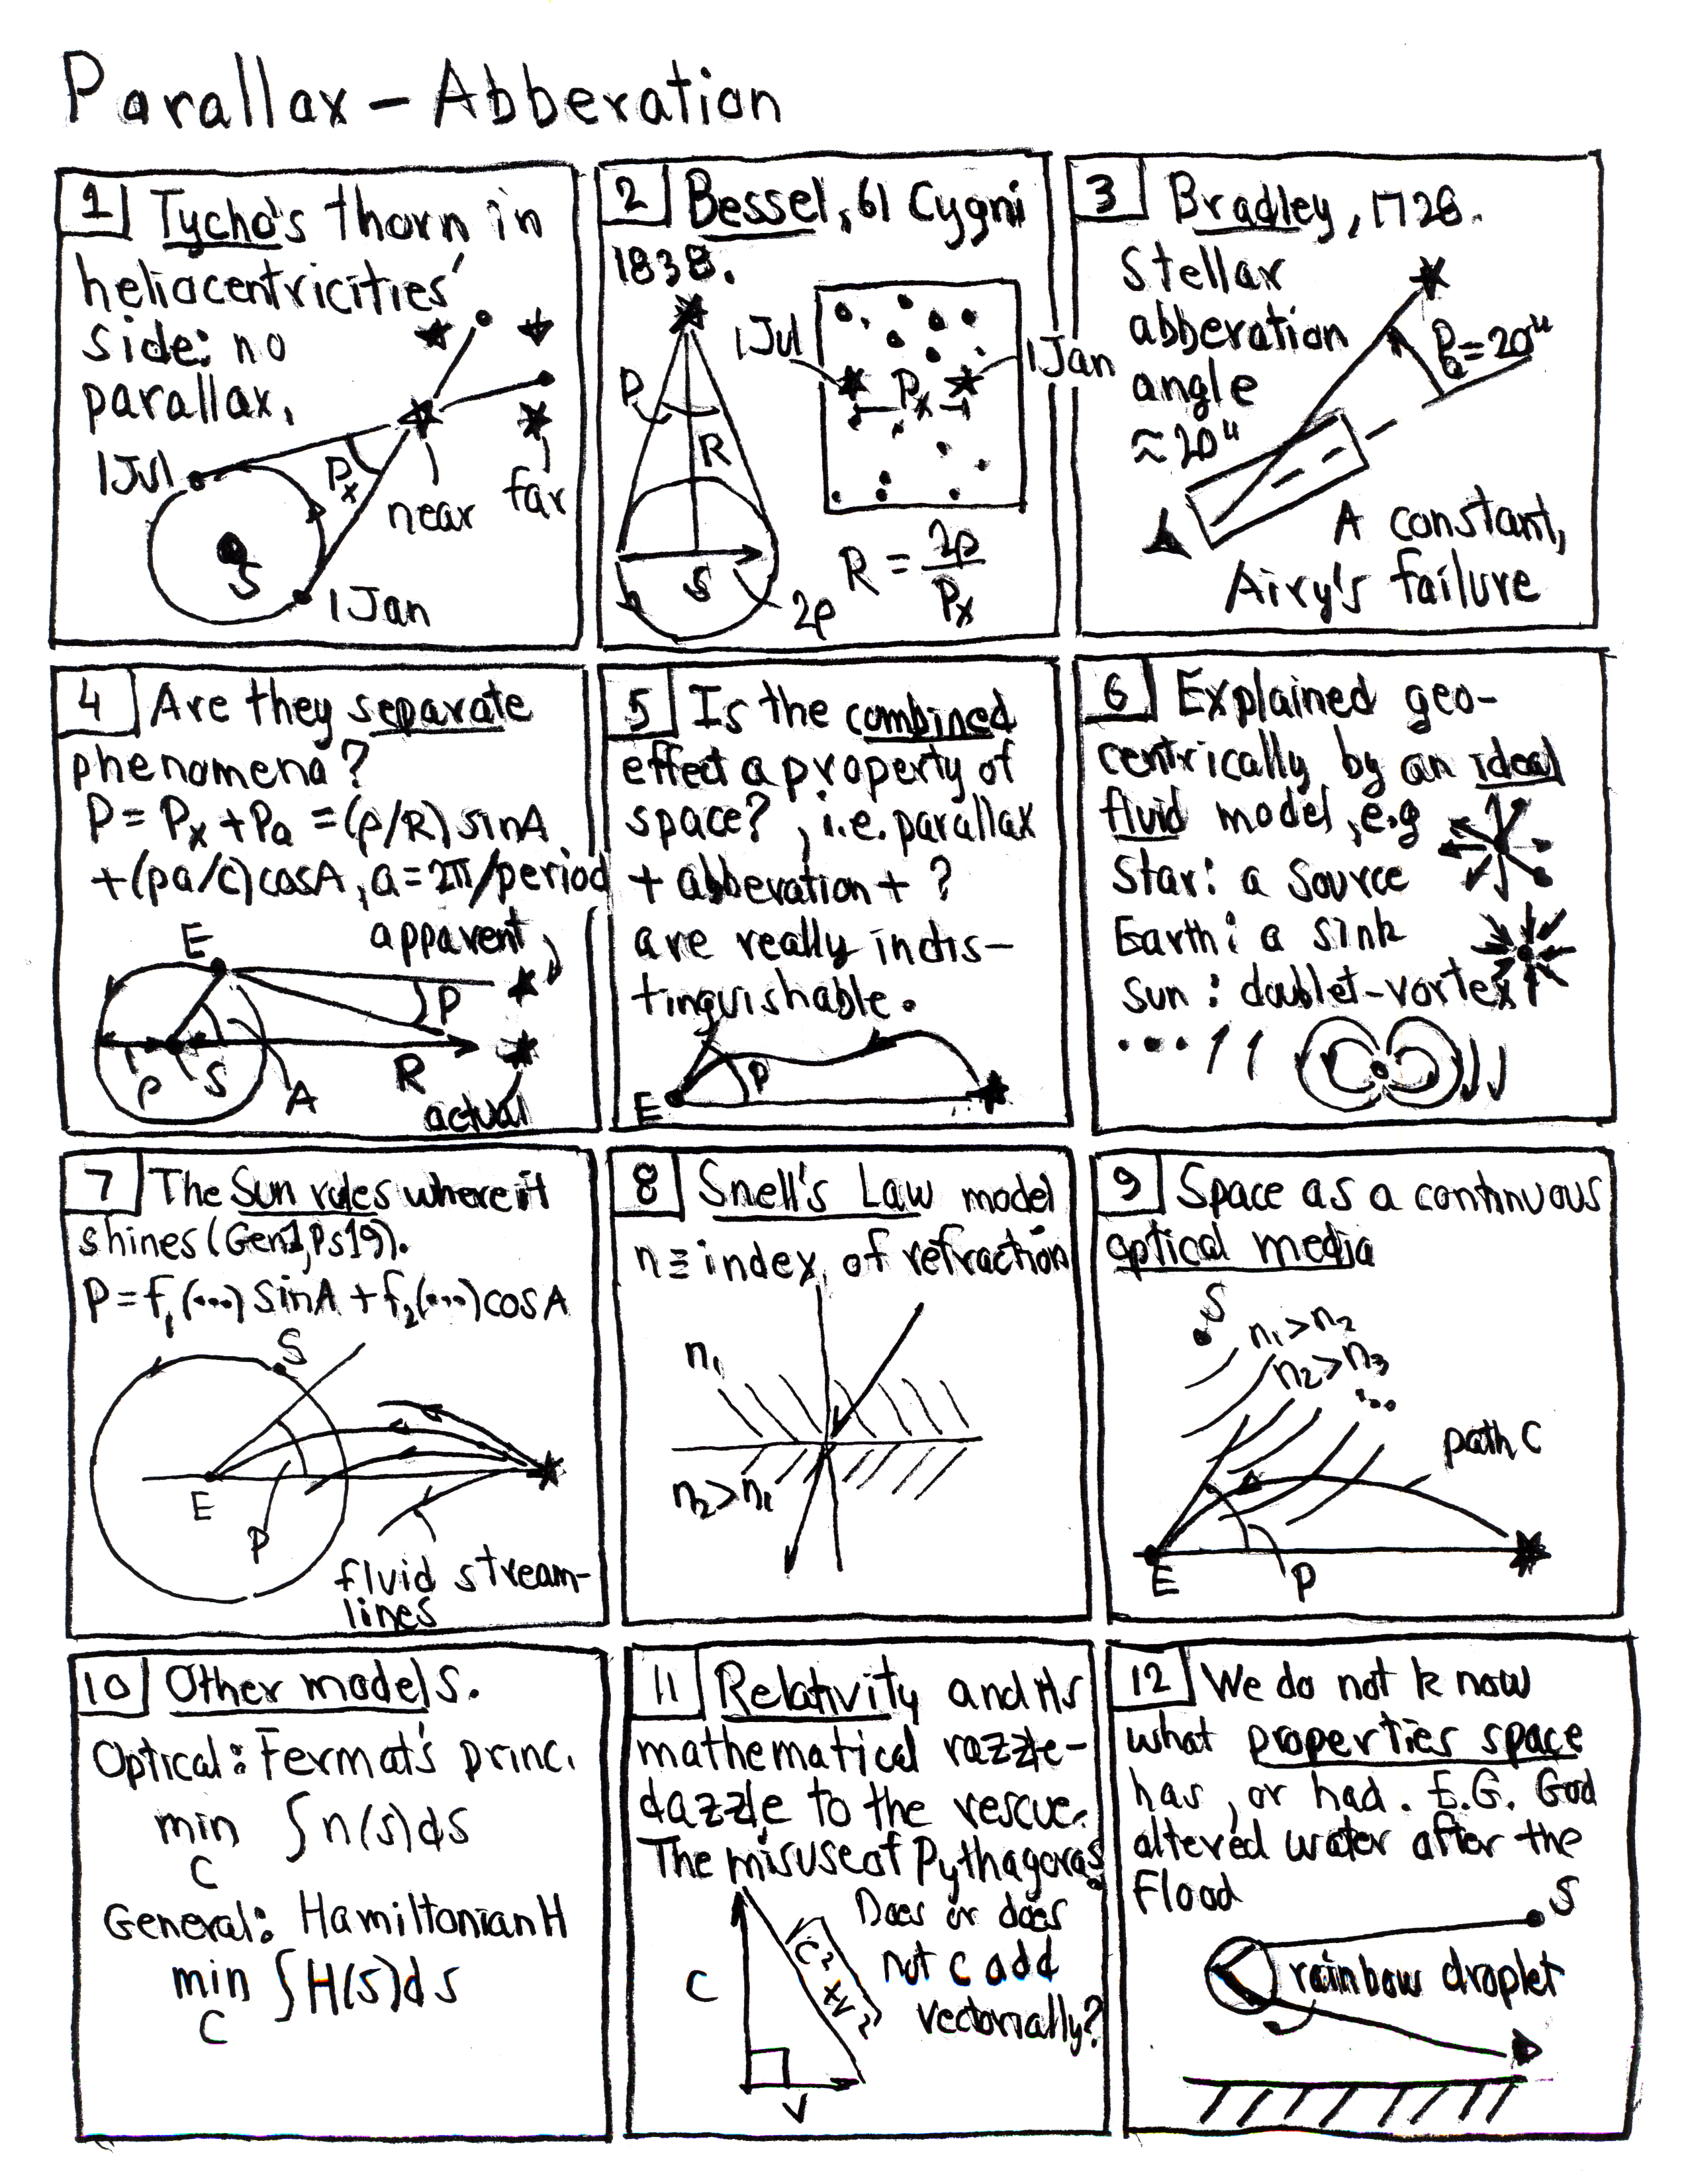 Parallax – Abberation
1 Tycho's thorn in
heliocentricities'
side: no
parallax.
1Jul
Px
near
far
S
1Jan
2 Bessel, 61 Cygni
1838.
1Jul
1Jan
P
Px
R
S
2ρ
R = 2ρ/Px
3 Bradley, 1728.
Stellar
abberation
angle
≈20"
Pa=20"
A constant,
Airy's failure
4 Are they separate
phenomena?
P = Px + Pa = (ρ/R) sinA
+(ρa/c)cosA, a=2π/period
apparent
E
P
ρ
S
A
R
actual
5 Is the combined
effect a property of
space?, i.e. parallax
+ abberation + ?
are really indis-
tinguishable.
P
E
6 Explained geo-
centrically by an ideal
fluid model, e.g
Star: a source
Earth: a sink
Sun: doublet-vortex
...
7 The Sun rules where it
shines (Gen1, Ps19).
P = f1(...) sinA + f2(...) cosA
S
E
P
fluid stream-
lines
8 Snell's Law model
n ≡ index of refraction
n1
n2>n1
9 Space as a continuous
optical media
S
n1>n2
n2>n3
...
path C
E
P
10 Other models.
Optical: Fermat's princ.
min ∫n(s)ds
C
General: Hamiltonian H
min ∫H(s)ds
C
11 Relativity and its
mathematical razzle-
dazzle to the rescue.
The misuse of Pythagoras.
Does or does
not c add
vectorially?
C
√c²+v²
V
12 We do not know
what properties space
has, or had. E.G. God
altered water after the
Flood
S
rainbow droplet